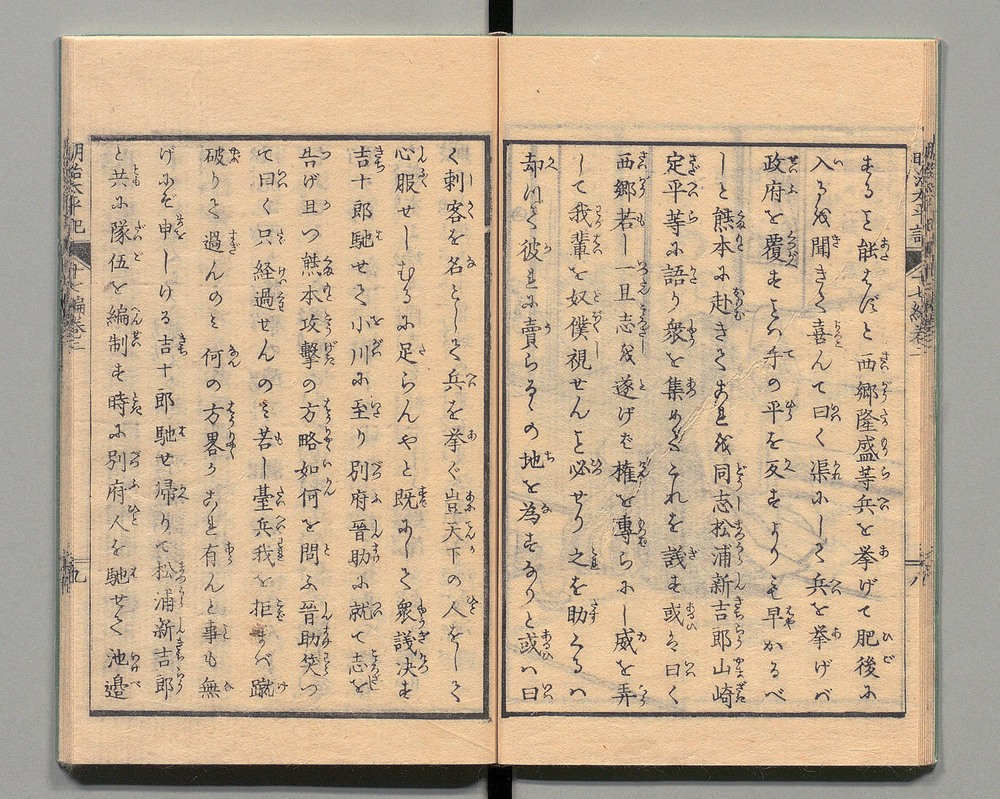 まると能はずと西郷隆盛等兵を挙げて肥後に
入るを聞きて喜んて曰く渠にして兵を挙げバ
政府を覆すこと手の平を反すよりも早かるべ
しと熊本に赴きてこれを同志松浦新吉郎山崎
定平等に語り衆を集めてこれを議す或は曰く
西郷若し一旦志を遂げば権を専らにし威を弄
して我輩を奴僕視せんと必せり之を助くるハ
却つて彼れに賣らるゝの地を為すなりと或ハ曰
く刺客を名として兵を挙ぐ豈天下の人をして
心服せしむるに足らんやと既にして衆議决す
吉十郎馳せて小川に至り別府晉助に就て志を
告げ且つ熊本攻撃の方略如何を問ふ晉助笑つ
て曰く只経過せんのミ若し臺兵我を拒まバ蹴
破りて過んのミ何の方畧かこれ有んと事も無
げにぞ申しける吉十郎馳せ帰りて松浦新吉郎
と共に隊伍を編制す時に別府人を馳せて池邉
明治太平記
十七編巻之二
八
明治太平記
十七編巻之二
九